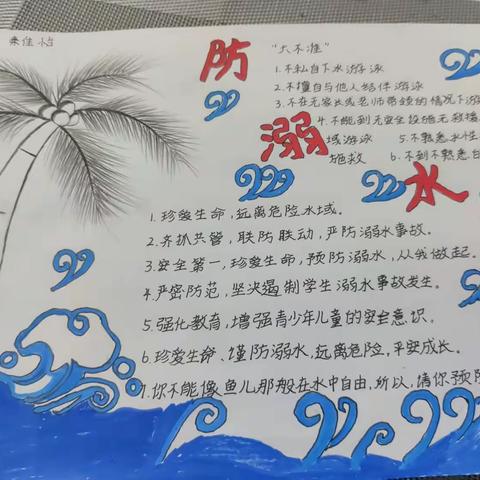 防
溺
水
"六不准"
1.不私自下水游泳
2.不擅自与他人结伴游泳
3.不在无家长或老师带领的情况下游
4.不能到无安全设施无救援
域游泳 5.不熟悉水性
施救 6.不到不熟悉
1.珍爱生命,远离危险水域。
2.齐抓共管,联防联动,严防溺水事故。
3.安全第一,珍爱生命,预防溺水,从我做起。
4.严密防范,坚决遏制学生溺水事故发生。
5.强化教育,增强青少年儿童的安全意识。
6.珍爱生命、谨防溺水,远离危险,平安成长。
7.你不能像鱼儿那般在水中自由,所以,请你预防